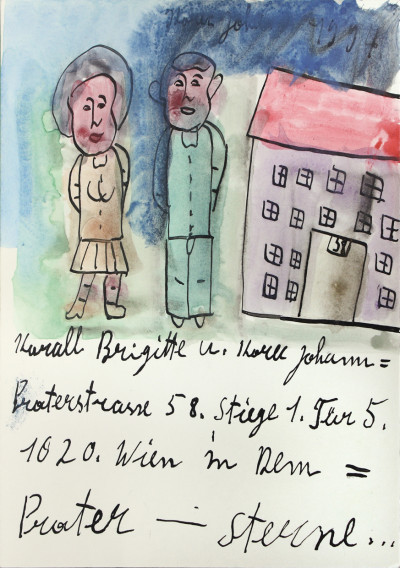 Johann 1994
58
Korall Brigitte u. Korec Johann =
Praterstrasse 58. Stiege 1. Tür 5.
1020. Wien in Dem =
Prater — sterne...